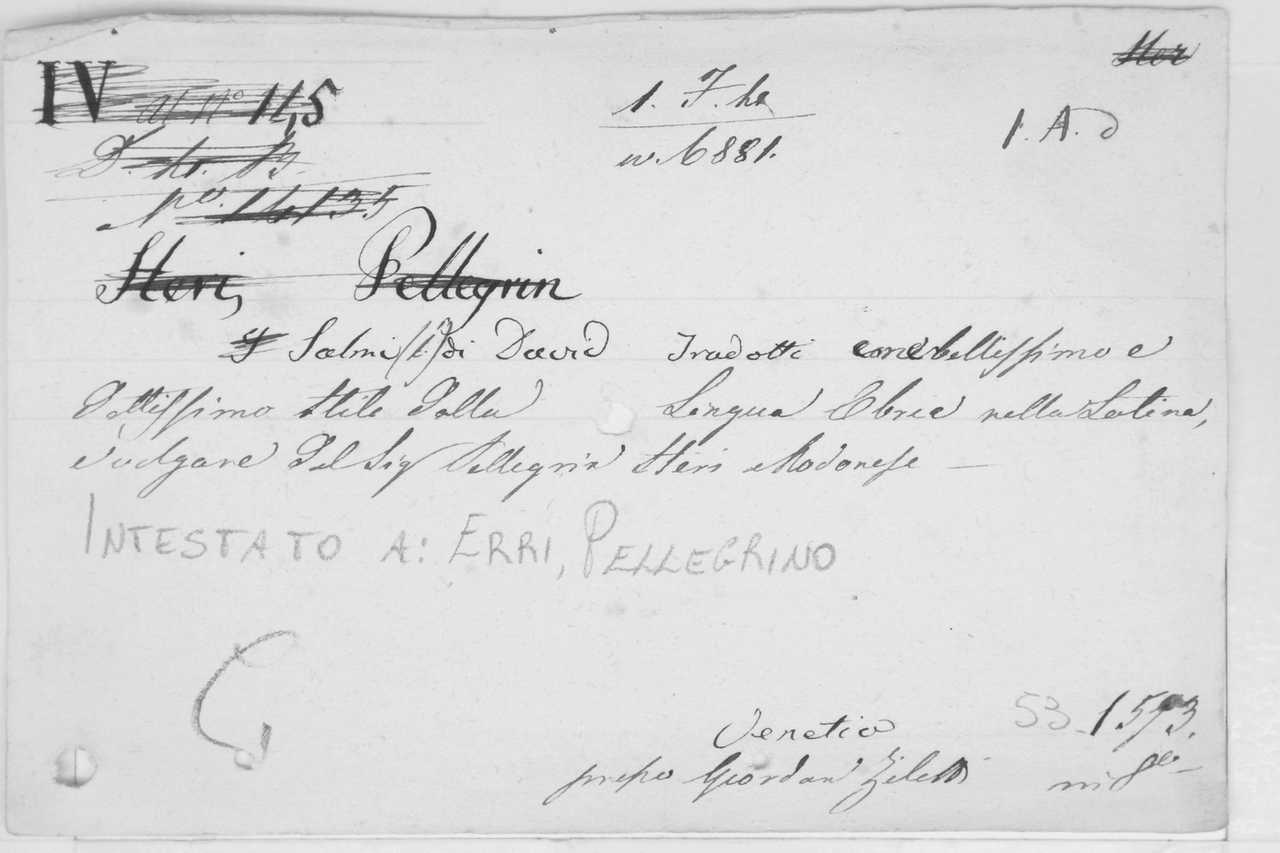 Her
IV 14,5
1. F. h
w. 6881.
1. A. d
No. 14135
Heri, Pellegrin
I Salmi di David Tradotti con bellissimo e
dottissimo stile dalla Lingua Ebrea nella Latina,
e volgare dal Sig Pellegrin Heri Modonese —
INTESTATO A: ERRI, PELLEGRINO
53. 1573.
Venetia
presso Giordan Ziletti